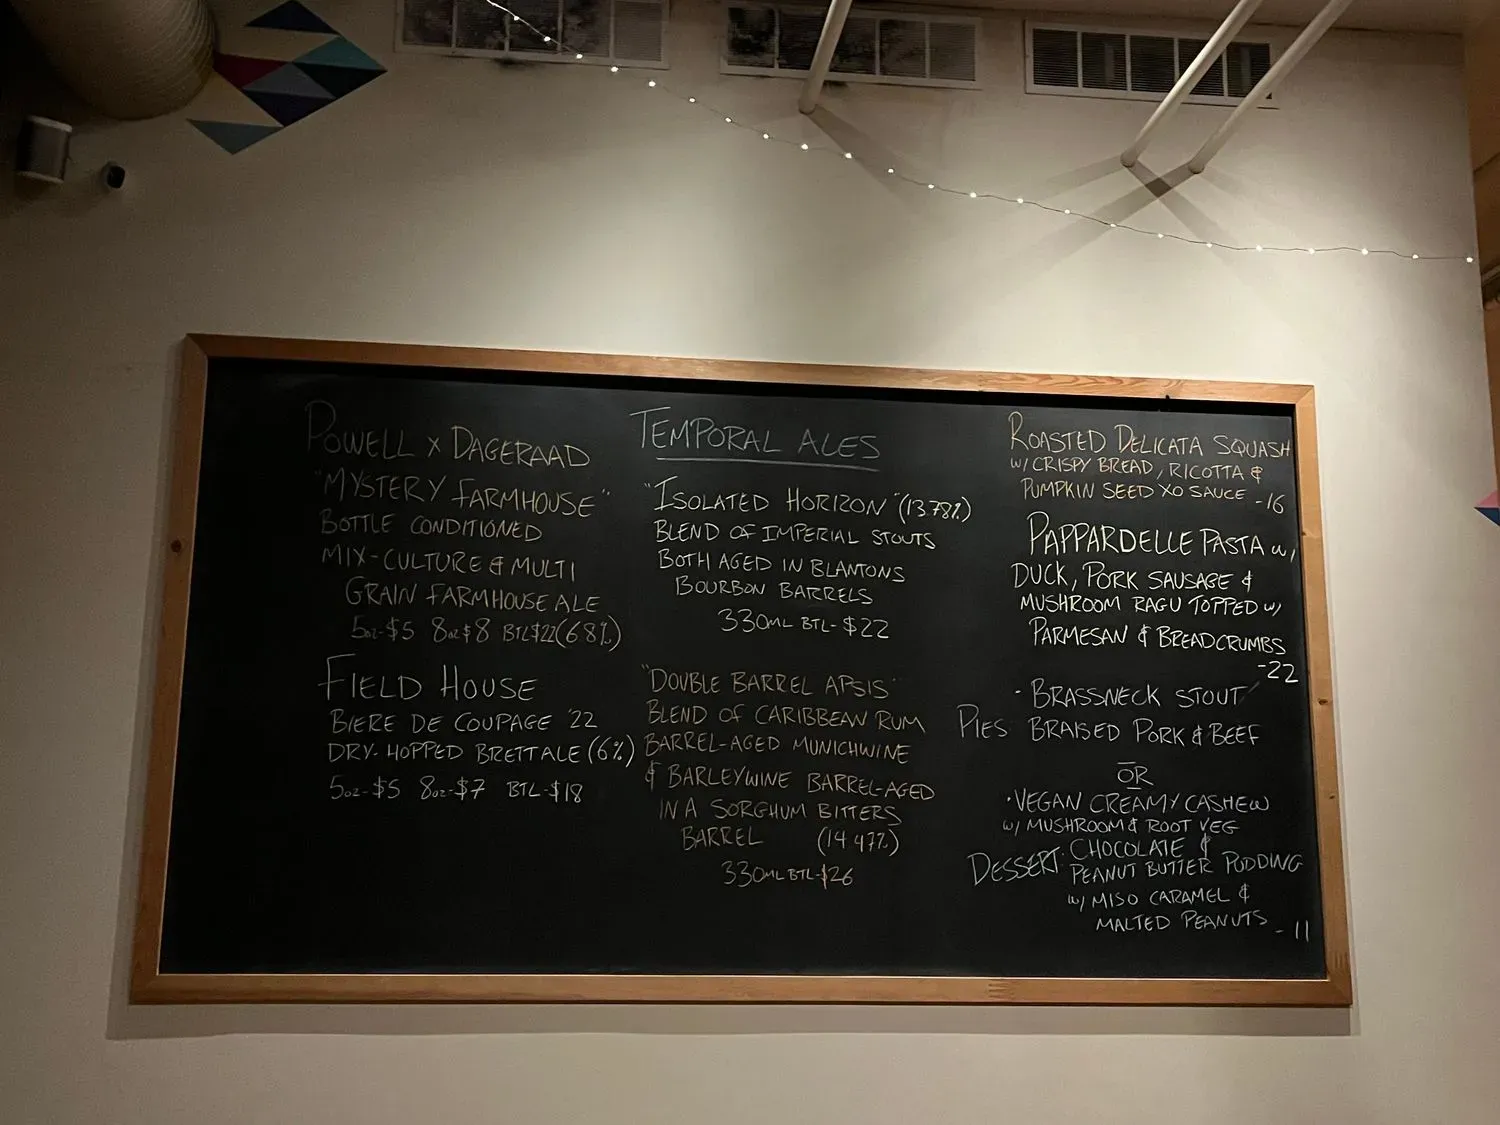 POWELL X DAGERAAD
"MYSTERY FARMHOUSE"
BOTTLE CONDITIONED
MIX-CULTURE & MULTI
GRAIN FARMHOUSE ALE
5oz-$5 8oz$8 BTL$22(6.8%)
FIELD HOUSE
BIERE DE COUPAGE '22
DRY-HOPPED BRETT ALE (6%)
5oz-$5 8oz-$7 BTL-$18
TEMPORAL ALES
"ISOLATED HORIZON" (13.78%)
BLEND OF IMPERIAL STOUTS
BOTH AGED IN BLANTONS
BOURBON BARRELS
330ML BTL-$22
"DOUBLE BARREL APSIS"
BLEND OF CARIBBEAN RUM
BARREL-AGED MUNICHWINE
& BARLEYWINE BARREL-AGED
IN A SORGHUM BITTERS
BARREL (14.47%)
330ML BTL-$26
ROASTED DELICATA SQUASH
W/ CRISPY BREAD, RICOTTA &
PUMPKIN SEED XO SAUCE -16
PAPPARDELLE PASTA W/
DUCK, PORK SAUSAGE &
MUSHROOM RAGU TOPPED W/
PARMESAN & BREADCRUMBS
-22
· BRASSNECK STOUT
PIES BRAISED PORK & BEEF
OR
· VEGAN CREAMY CASHEW
W/ MUSHROOM & ROOT VEG
DESSERT: CHOCOLATE &
PEANUT BUTTER PUDDING
W/ MISO CARAMEL &
MALTED PEANUTS - 11